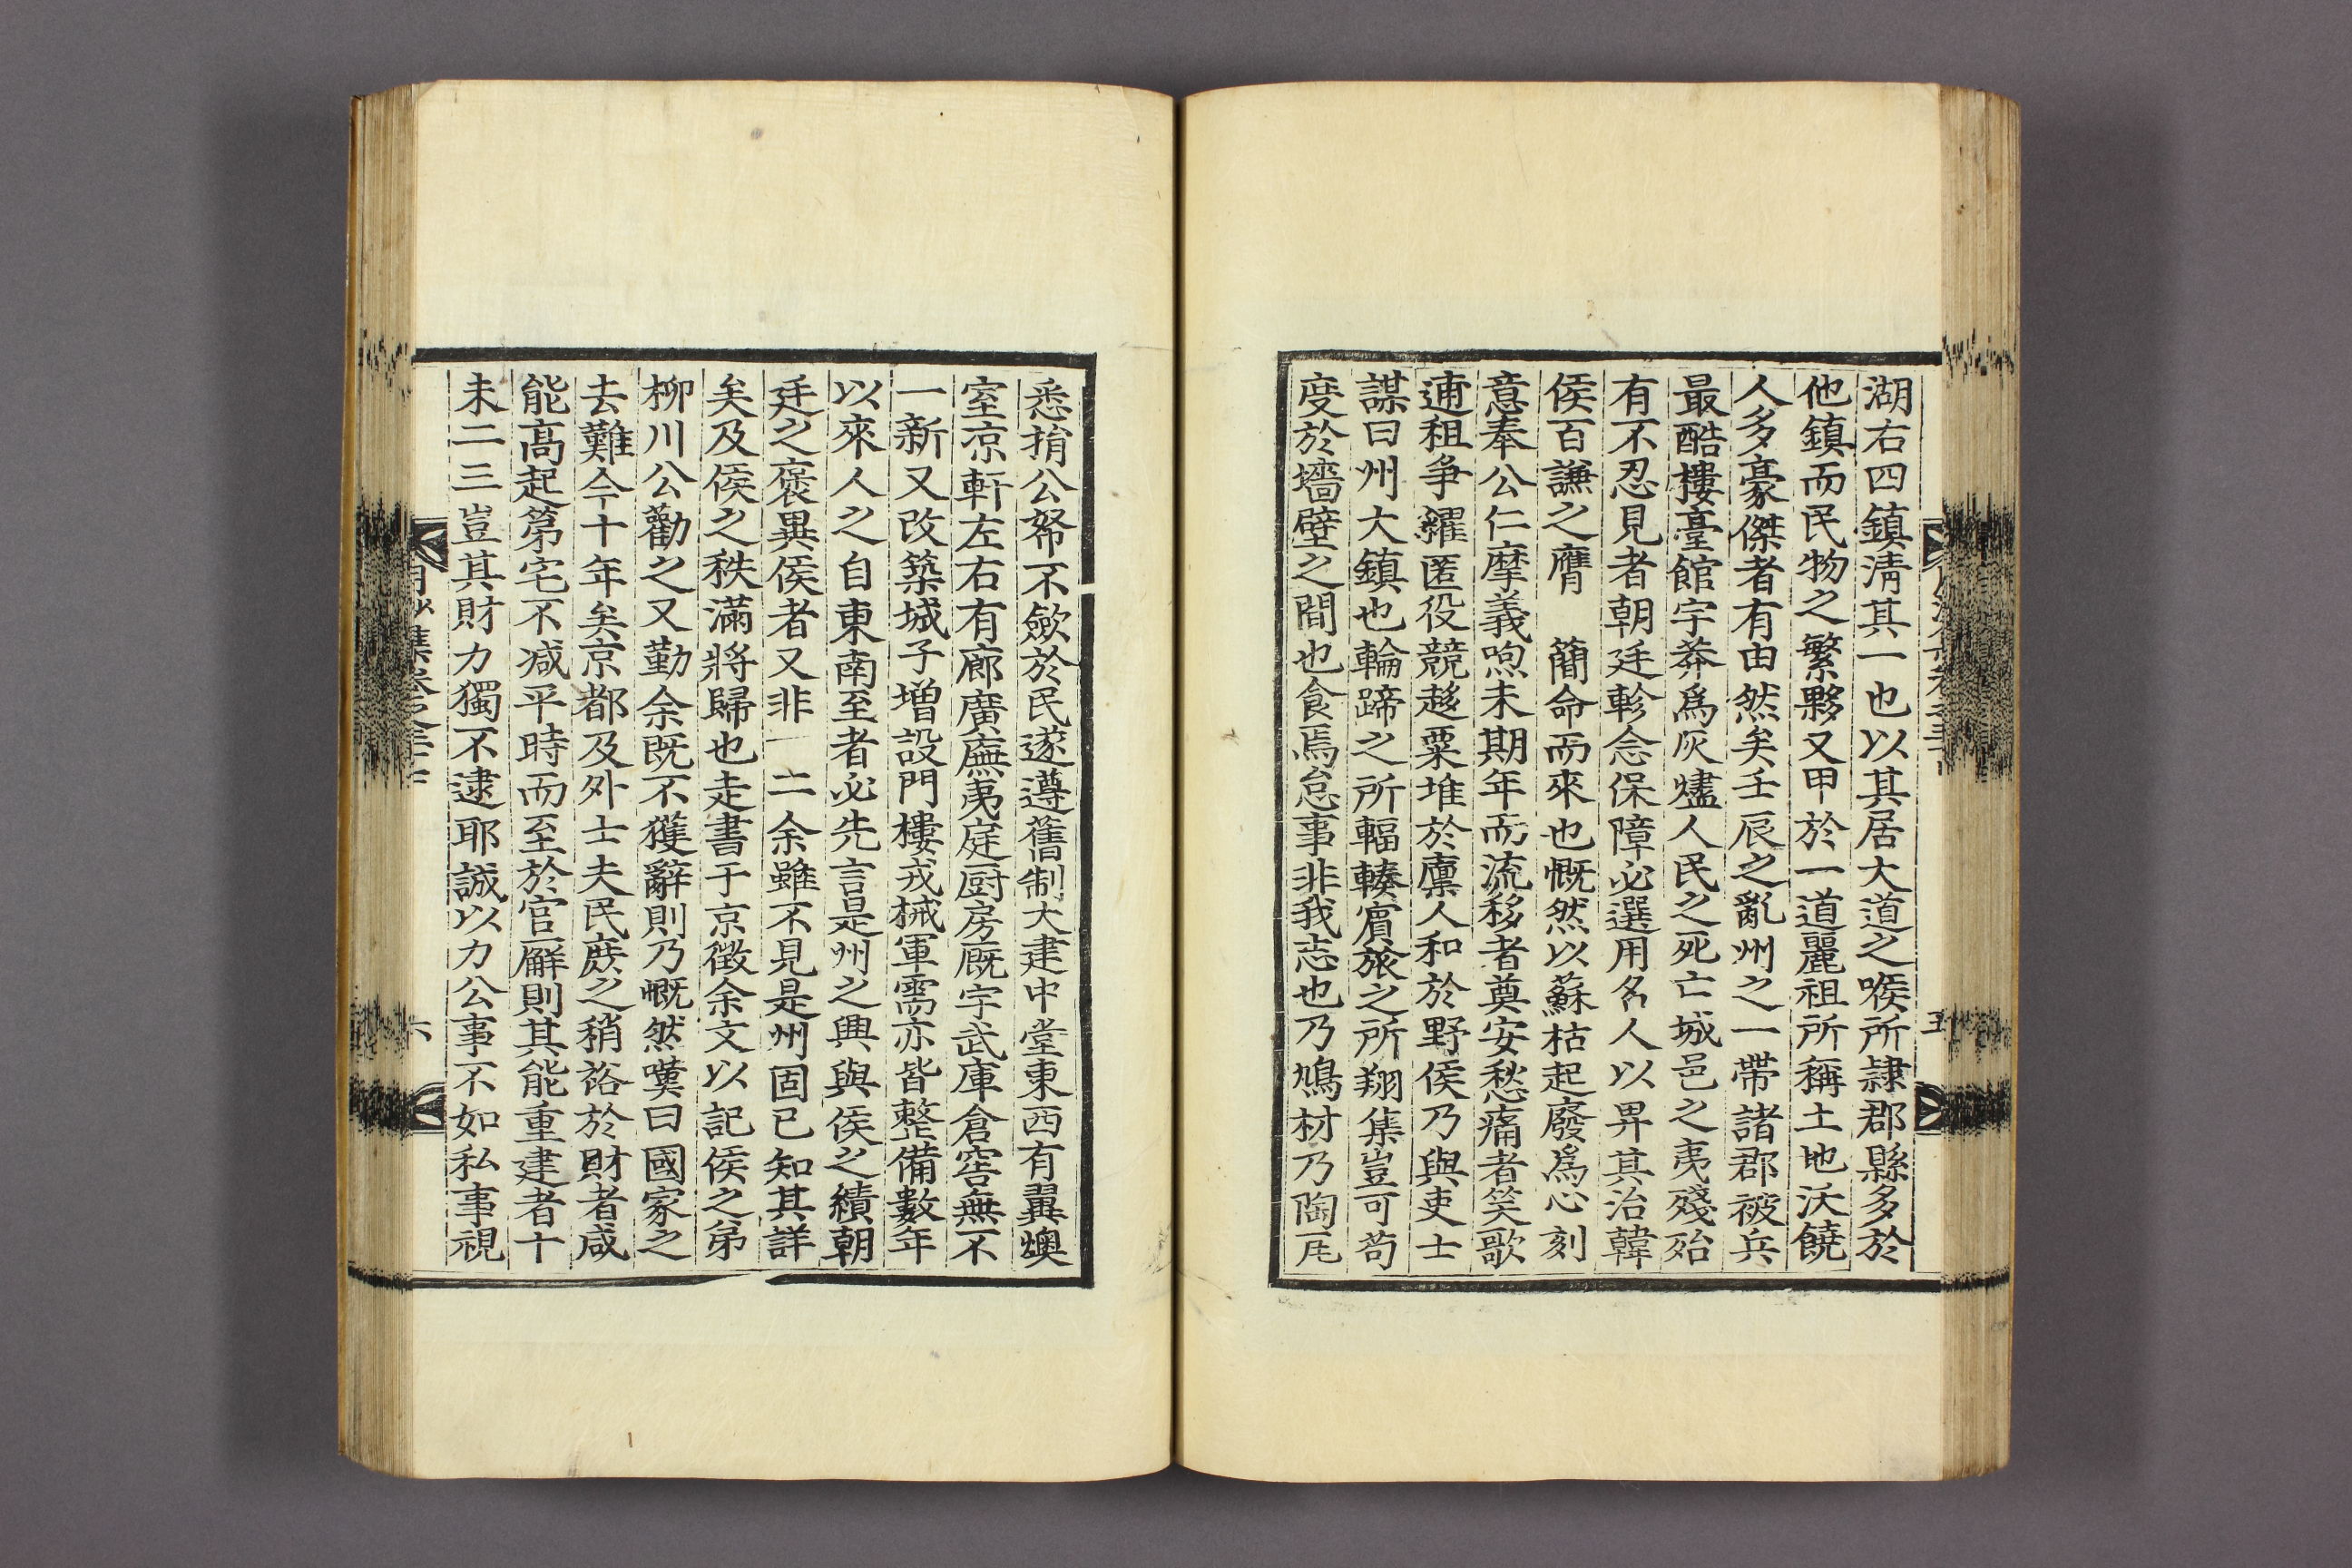 湖右四鎮淸其一也以其居大道之喉所隷郡縣多於
他鎮而民物之繁夥又甲於一道麗祖所稱土地沃饒
人多豪傑者有由然矣壬辰之亂州之一帶諸郡被兵
最酷樓臺館宇莽爲灰燼人民之死亡城邑之夷殘殆
有不忍見者朝廷軫念保障必選用名人以畀其治韓
侯百謙之膺　簡命而來也慨然以蘇枯起廢爲心刻
意奉公仁摩義呴未期年而流移者奠安愁痛者笑歌
逋租爭糶匿役競趍粟堆於廩人和於野侯乃與吏士
謀曰州大鎮也輪蹄之所輻輳賔旅之所翔集豈可苟
度於墻壁之間也食焉怠事非我志也乃鳩材乃陶瓦
悉捐公帑不歛於民遂遵舊制大建中堂東西有翼燠
室凉軒左右有廊廣廡夷庭厨房厩宇武庫倉窖無不
一新又改築城子增設門樓戎械軍需亦皆整備數年
以來人之自東南至者必先言是州之興與侯之績朝
廷之褒異侯者又非一二余雖不見是州固已知其詳
矣及侯之秩滿將歸也走書于京徵余文以記侯之弟
柳川公勸之又勤余既不獲辭則乃慨然嘆曰國家之
去難今十年矣京都及外士夫民庶之稍裕於財者咸
能高起第宅不减平時而至於官廨則其能重建者十
未二三豈其財力獨不逮耶誠以力公事不如私事視
六